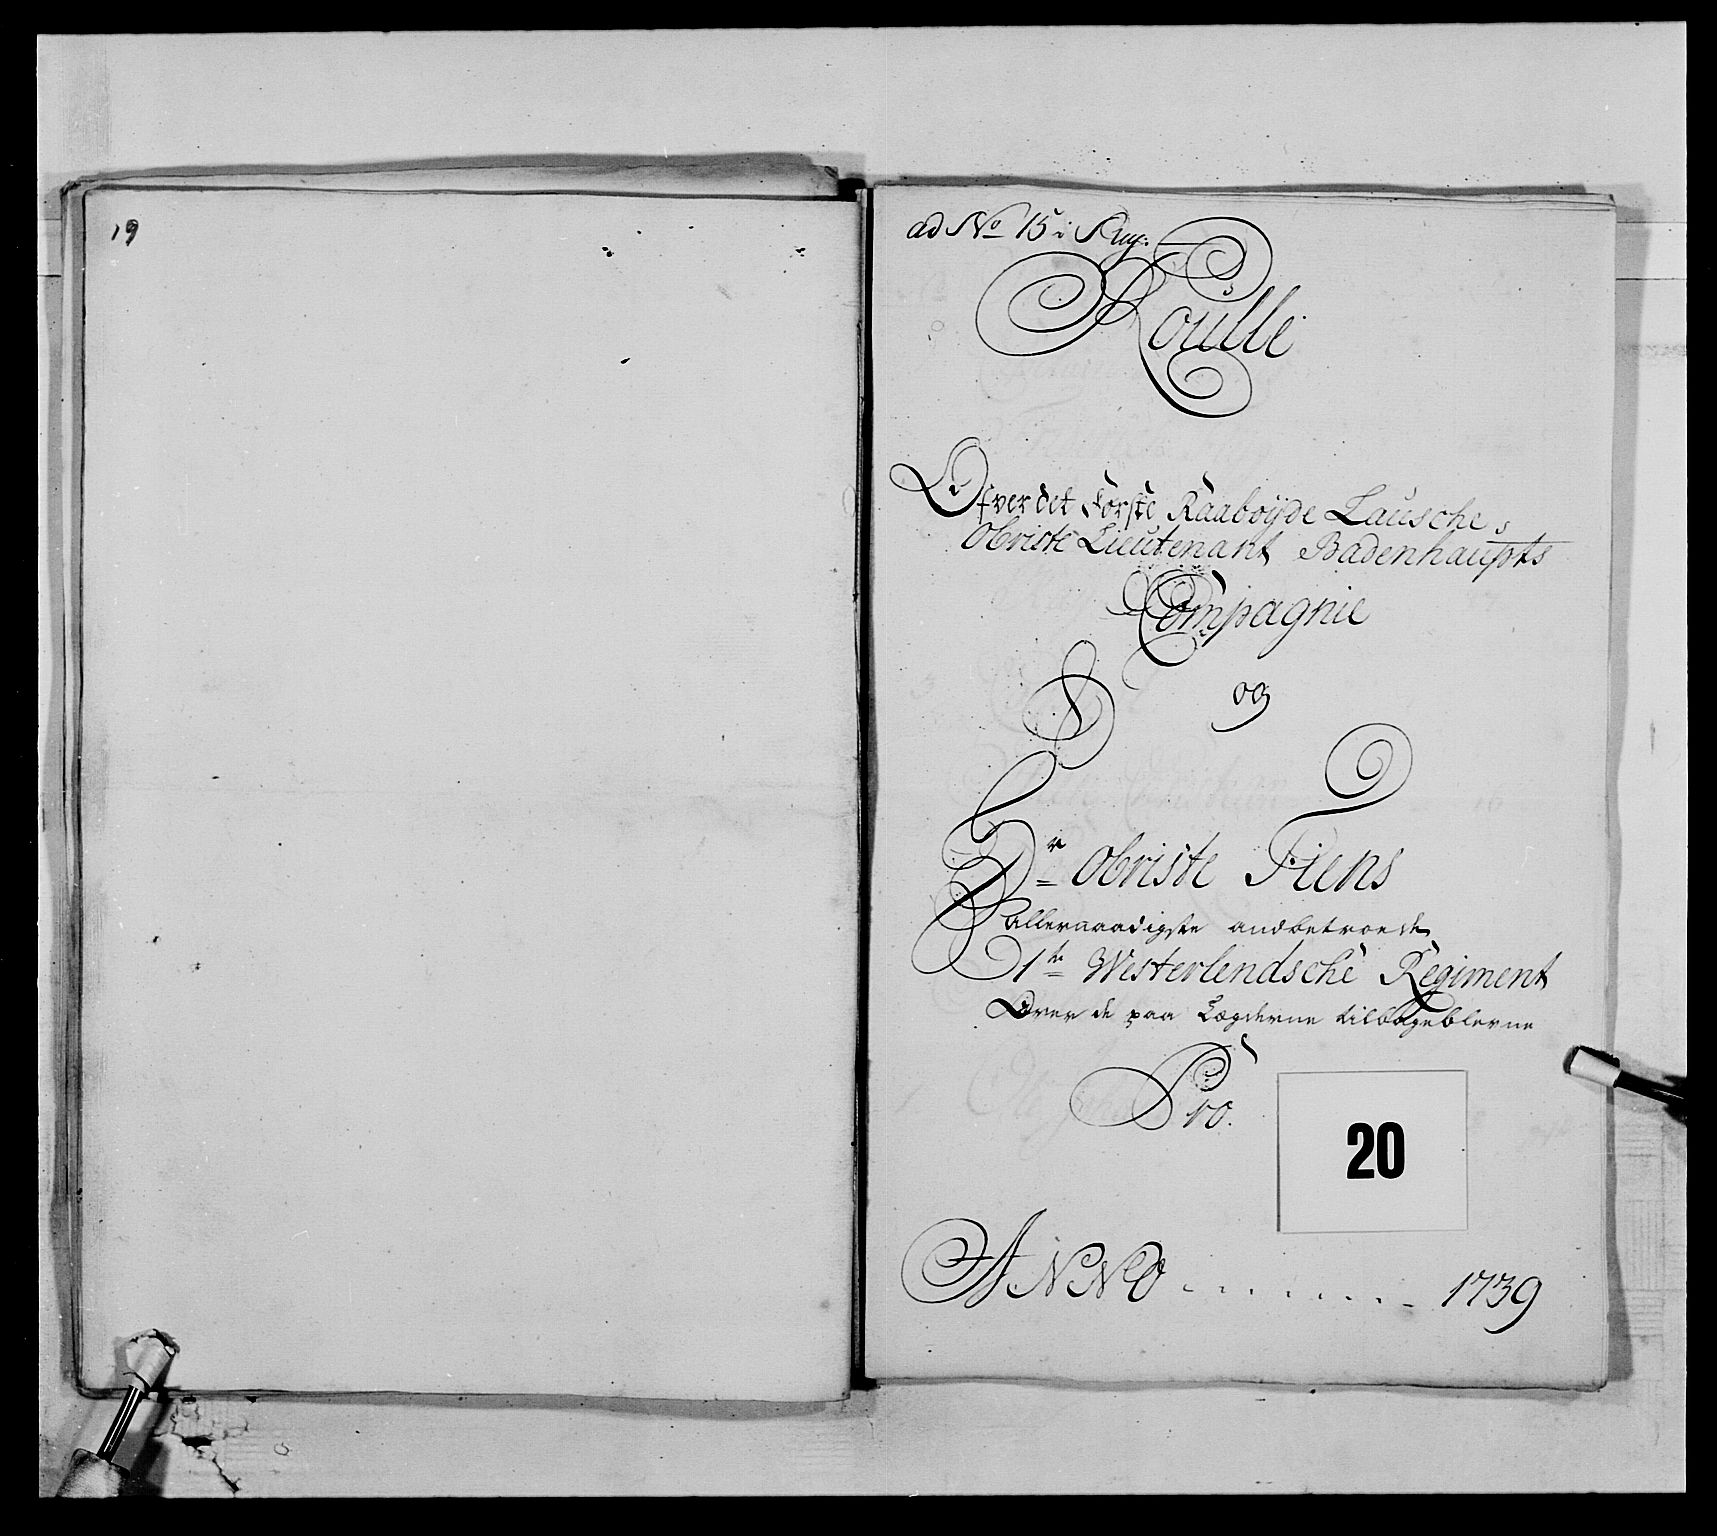 19
ad No 15 i
Roulle
Ofver det Første Raabøijde Lausche
Obriste Lieutenant Badenhaupts
Compagnie
og
Hr Obriste Fiens
allernaadigste anbetroede
1te Westerlendsche Regiment
Over de paa Lægderne tilbageblevne
Pro.
20
ANNO - - - - - - - 1739